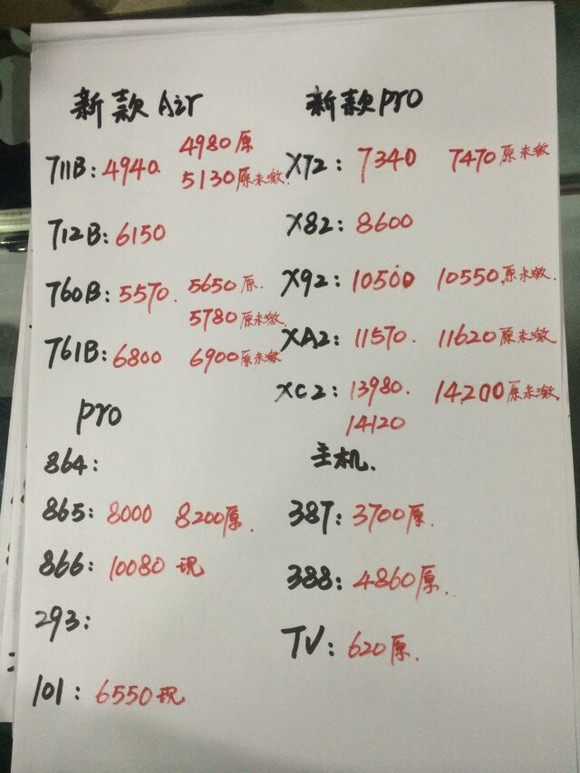 新款Air
4980原
711B: 4940.
5130原未激.
712B: 6150
760B: 5570. 5650原.
5780原未激.
761B: 6800 6900原未激
pro
864:
865: 8000 8200原.
866: 10080 现
293:
101: 6550现
新款pro
X72: 7340 7470原未激
X82: 8600
X92: 10500 10550原未激.
XA2: 11570. 11620原未激
XC2: 13980. 14200原未激
14120
主机.
387: 3700原.
388: 4860原.
TV: 620原.